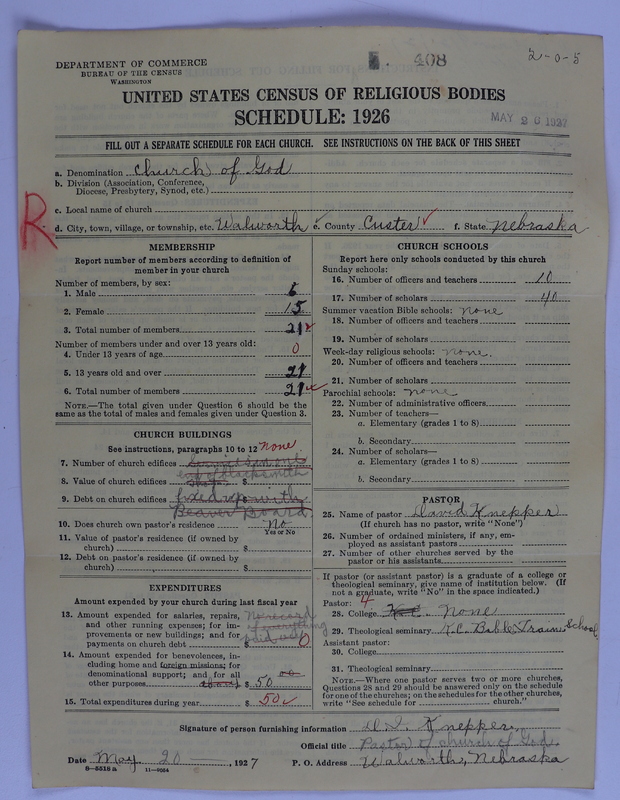 408
2-0-5
DEPARTMENT OF COMMERCE
BUREAU OF THE CENSUS
WASHINGTON
UNITED STATES CENSUS OF RELIGIOUS BODIES
SCHEDULE: 1926
MAY 20 1927
FILL OUT A SEPARATE SCHEDULE FOR EACH CHURCH. SEE INSTRUCTIONS ON THE BACK OF THIS SHEET
a. Denomination Church of God
b. Division (Association, Conference, Diocese, Presbytery, Synod, etc.)
c. Local name of church
R
d. City, town, village, or township, etc. Walworth e. County Custer f. State Nebraska
MEMBERSHIP
Report number of members according to definition of
member in your church
Number of members, by sex:
1. Male 6
2. Female 15
3. Total number of members 21
Number of members under and over 13 years old:
4. Under 13 years of age 0
5. 13 years old and over 21
6. Total number of members 21
NOTE.—The total given under Question 6 should be the
same as the total of males and females given under Question 3.
CHURCH BUILDINGS
See instructions, paragraphs 10 to 12 None
7. Number of church edifices
8. Value of church edifices $ blacksmith
9. Debt on church edifices fixed up with
Beaver Board
10. Does church own pastor's residence No
Yes or No
11. Value of pastor's residence (if owned by
church) $
12. Debt on pastor's residence (if owned by
church) $
EXPENDITURES
Amount expended by your church during last fiscal year
13. Amount expended for salaries, repairs, No record
and other running expenses; for im- of everything
provements or new buildings; and for paid out
payments on church debt $ 0
14. Amount expended for benevolences, in-
cluding home and foreign missions; for
denominational support; and for all
other purposes about $ 50 00
15. Total expenditures during year $ 50
CHURCH SCHOOLS
Report here only schools conducted by this church
Sunday schools:
16. Number of officers and teachers 10
17. Number of scholars 40
Summer vacation Bible schools: none
18. Number of officers and teachers
19. Number of scholars
Week-day religious schools: none.
20. Number of officers and teachers
21. Number of scholars
Parochial schools: none
22. Number of administrative officers
23. Number of teachers—
a. Elementary (grades 1 to 8)
b. Secondary
24. Number of scholars—
a. Elementary (grades 1 to 8)
b. Secondary
PASTOR
25. Name of pastor David Knepper
(If church has no pastor, write "None")
26. Number of ordained ministers, if any, em-
ployed as assistant pastors
27. Number of other churches served by the
pastor or his assistants
If pastor (or assistant pastor) is a graduate of a college or
theological seminary, give name of institution below. (If
not a graduate, write "No" in the space indicated.)
Pastor: 4
28. College None
29. Theological seminary K.C. Bible Train. School
Assistant pastor:
30. College
31. Theological seminary
NOTE.—Where one pastor serves two or more churches,
Questions 28 and 29 should be answered only on the schedule
for one of the churches; on the schedules for the other churches,
write "See schedule for church."
Signature of person furnishing information D. I. Knepper
Official title Pastor of church of God
Date May 20, 1927 P. O. Address Walworth, Nebraska
8—5518a 11—9084